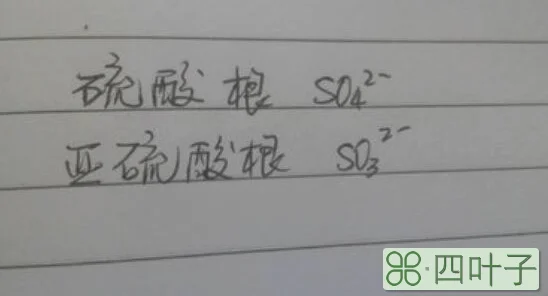 硫酸根 SO₄²⁻
亚硫酸根 SO₃²⁻
四叶子